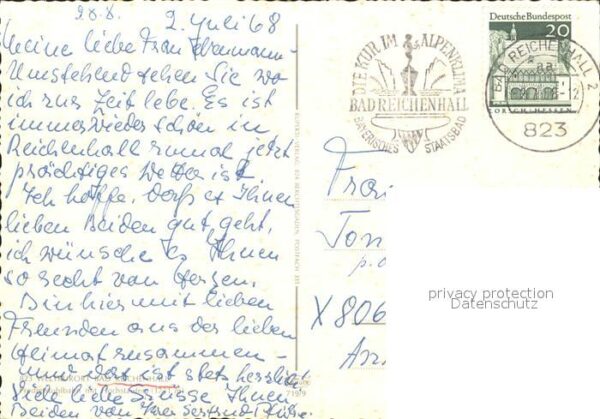 2. Juli 68
Meine liebe Frau
Umstehend sehen Sie wo
ich zur Zeit lebe. Es ist
immer wieder schön in
Reichenhall zumal jetzt
prächtiges Wetter ist.
Ich hoffe, daß es Ihnen
lieben Beiden gut geht,
ich wünsche es Ihnen
so recht von Herzen.
Bin hier mit lieben
Freunden aus der lieben
Heimat zusammen -
und das ist stets herzlich
Viele liebe Grüsse Ihnen
Beiden von Ihrer
DIE KUR IM ALPENKLIMA
BAD REICHENHALL
BAYERISCHES STAATSBAD
Deutsche Bundespost
20
LORSCH/HESSEN
BAD REICHENHALL 2
823
Frau
X 806
privacy protection
Datenschutz